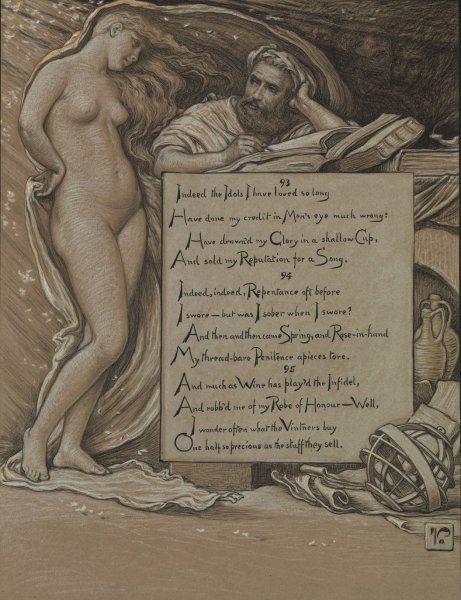 93
Indeed the Idols I have loved so long
Have done my credit in Men's eye much wrong:
Have drown'd my Glory in a shallow Cup,
And sold my Reputation for a Song.
94
Indeed, indeed, Repentance oft before
I swore — but was I sober when I swore?
And then and then came Spring, and Rose-in-hand
My thread-bare Penitence apieces tore.
95
And much as Wine has play'd the Infidel,
And robb'd me of my Robe of Honour — Well,
I wonder often what the Vintners buy
One half so precious as the stuff they sell.